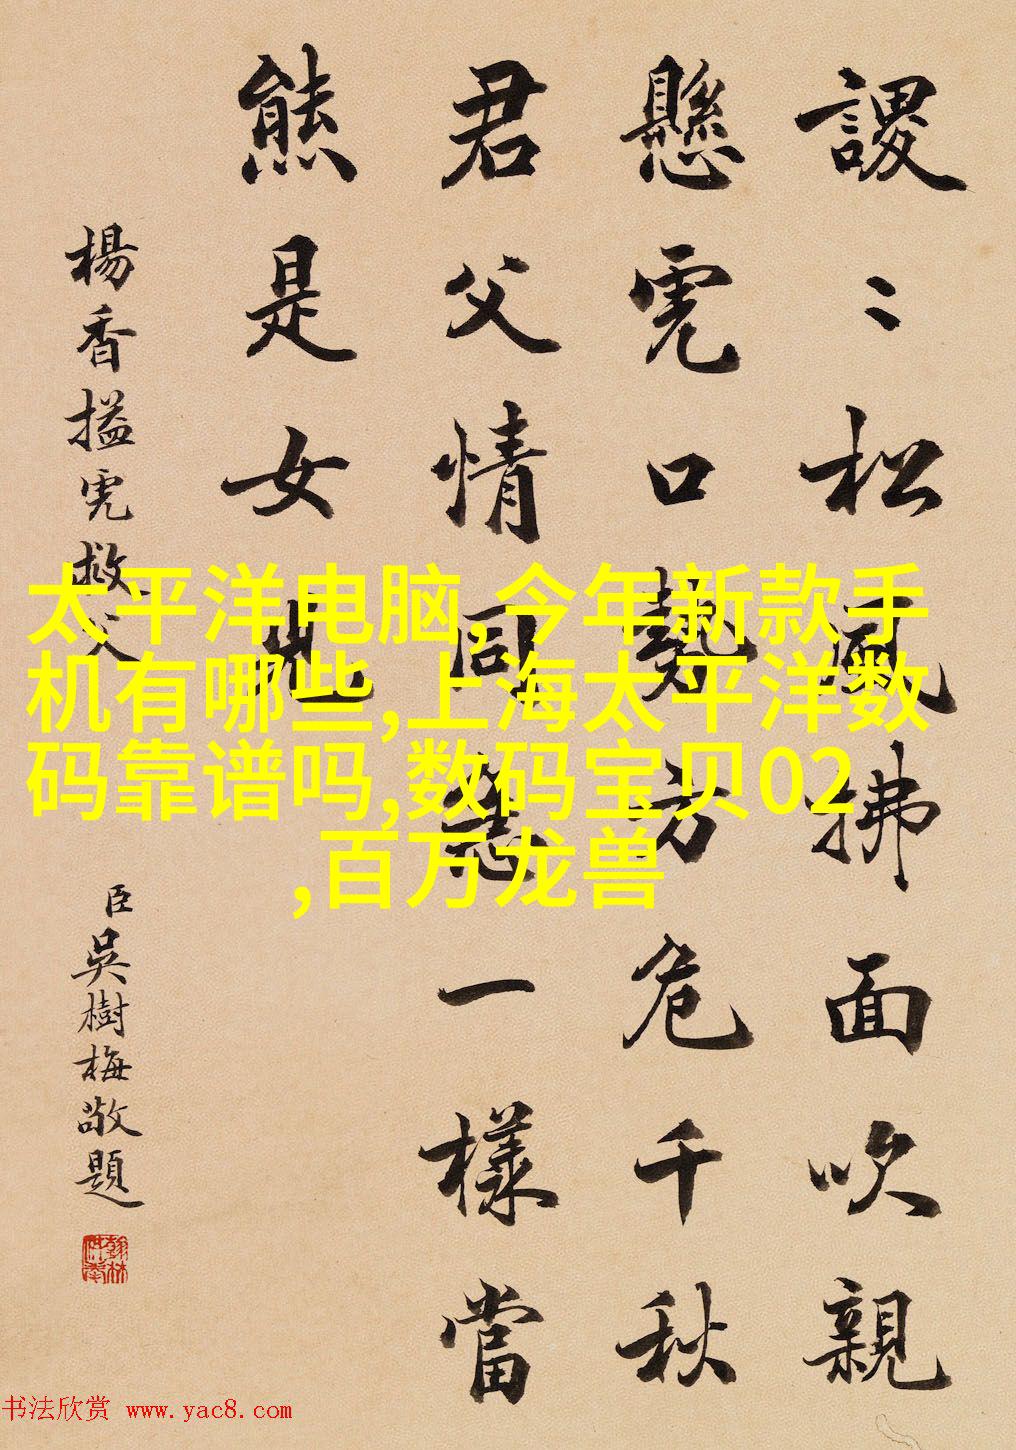 謖〻松風拂面吹親
懸虎口勢方危千秋
君父情同急一樣當
熊是女兒
楊香搤虎救父
臣吳樹梅敬題
翰林供奉
太平洋电脑,今年新款手
机有哪些,上海太平洋数
码靠谱吗,数码宝贝02
,百万龙兽
书法欣赏 www.yac8.com